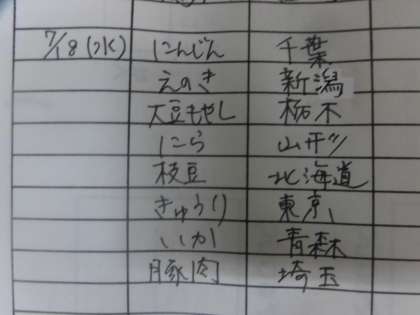 7/18(水) にんじん 千葉
えのき 新潟
大豆もやし 栃木
にら 山形
枝豆 北海道
きゅうり 東京
いか 青森
豚肉 埼玉